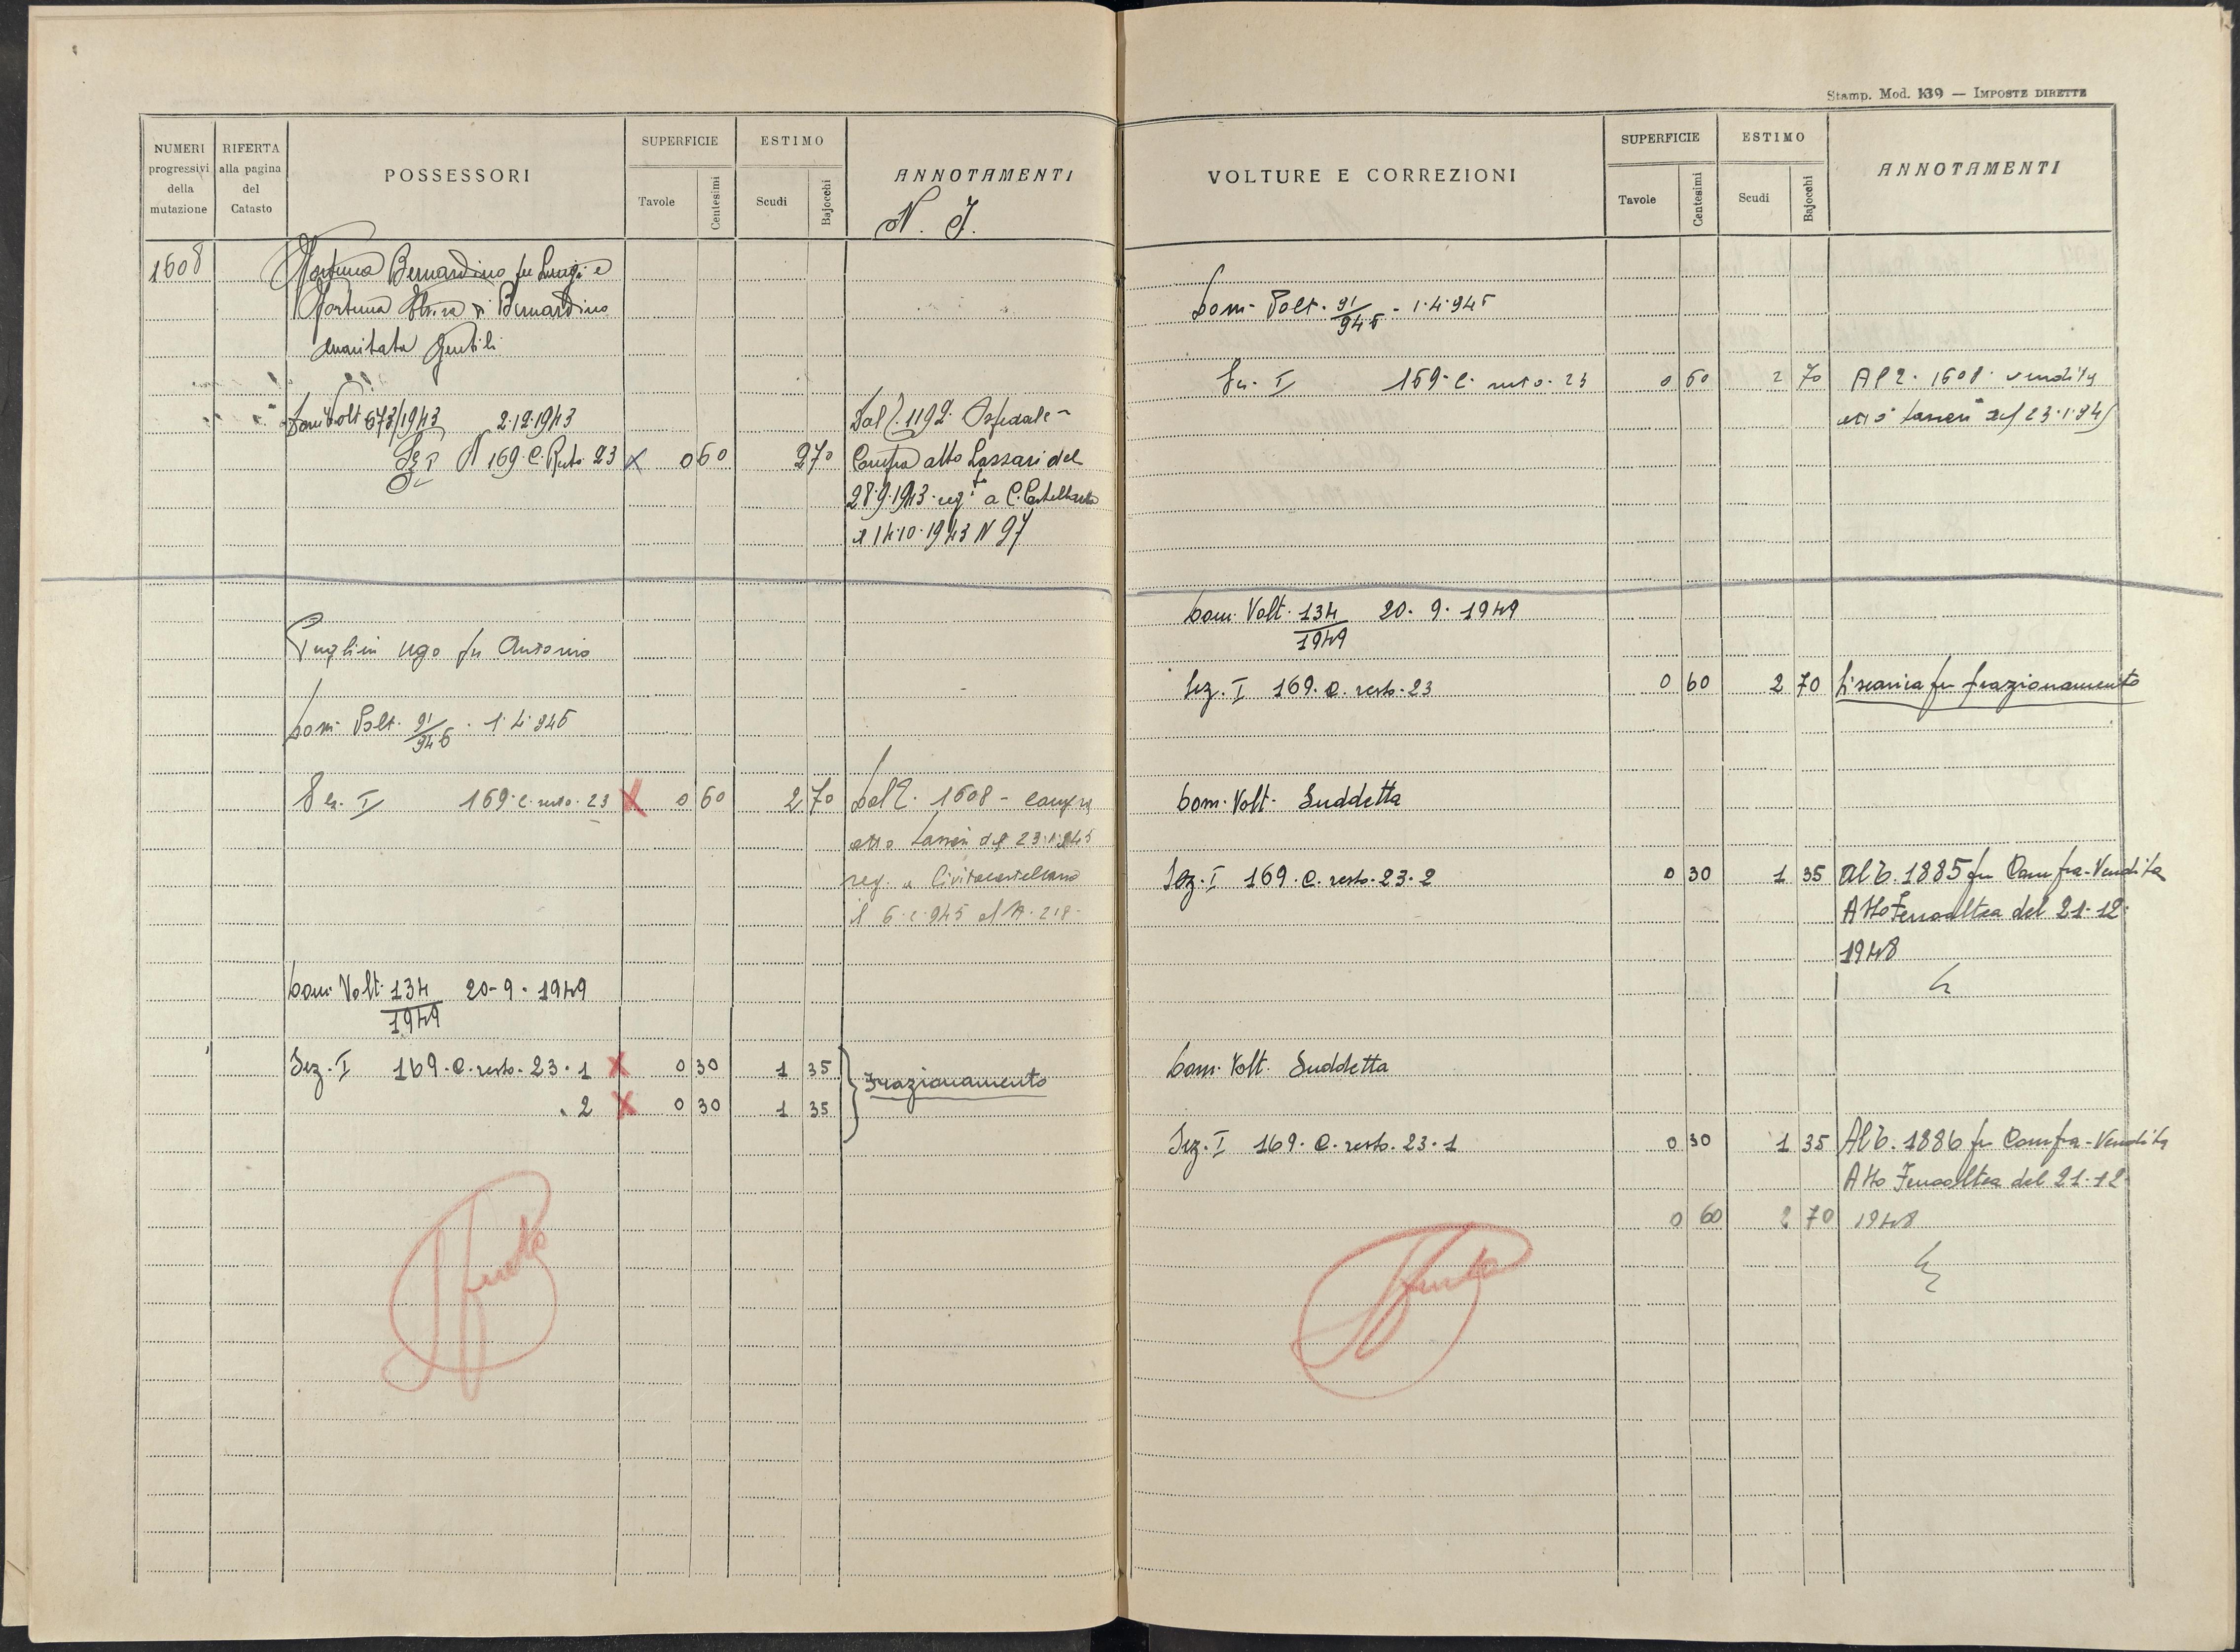 NUMERI progressivi della mutazione
RIFERTA alla pagina del Catasto
POSSESSORI
SUPERFICIE
Tavole
Centesimi
ESTIMO
Scudi
Bajocchi
ANNOTAMENTI
N. I.
1608
Fortuna Bernardino fu Luigi e
Fortuna di Bernardino
maritata Gentili
Dom Volt 673/1943 2.12.1943
Dal 1192 Ospedale -
Sez I N 169.C. Resto 23 X 0 60 2 70 Compra atto Lazzari del
28.9.1943 reg.to a C. Castellana
il 14.10.1943 N 97
Puglini Ugo fu Antonio
Dom. Volt. 91/945 . 1.4.945
Sez. I 169.C. resto. 23 X 0 60 2 70 Dal 1608 - compra
atto Lazzari del 23.1.945
reg. a Civitacastellana
il 6.2.945 al N. 218-
Dom. Volt. 134/1949 20-9-1949
Sez. I 169.C. resto. 23.1 X 0 30 1 35 Frazionamento
. 2 X 0 30 1 35
Stamp. Mod. 139 — IMPOSTE DIRETTE
VOLTURE E CORREZIONI
SUPERFICIE
Tavole
Centesimi
ESTIMO
Scudi
Bajocchi
ANNOTAMENTI
Dom. Volt. 91/945 - 1.4.945
Sez. I 169.C. resto. 23 0 60 2 70 Al 2. 1608 vendita
atto Lazzari del 23.1.945
Dom. Volt. 134/1949 20. 9. 1949
Sez. I 169. C. resto. 23 0 60 2 70 Discarica per frazionamento
Dom. Volt. Suddetta
Sez. I 169. C. resto. 23.2 0 30 1 35 Al 2. 1885 per Compra-Vendita
Atto Ferraoltea del 21-12-
1948
Dom. Volt. Suddetta
Sez. I 169. C. resto. 23.1 0 30 1 35 Al 2. 1886 per Compra-Vendita
Atto Ferraoltea del 21-12-
0 60 2 70 1948